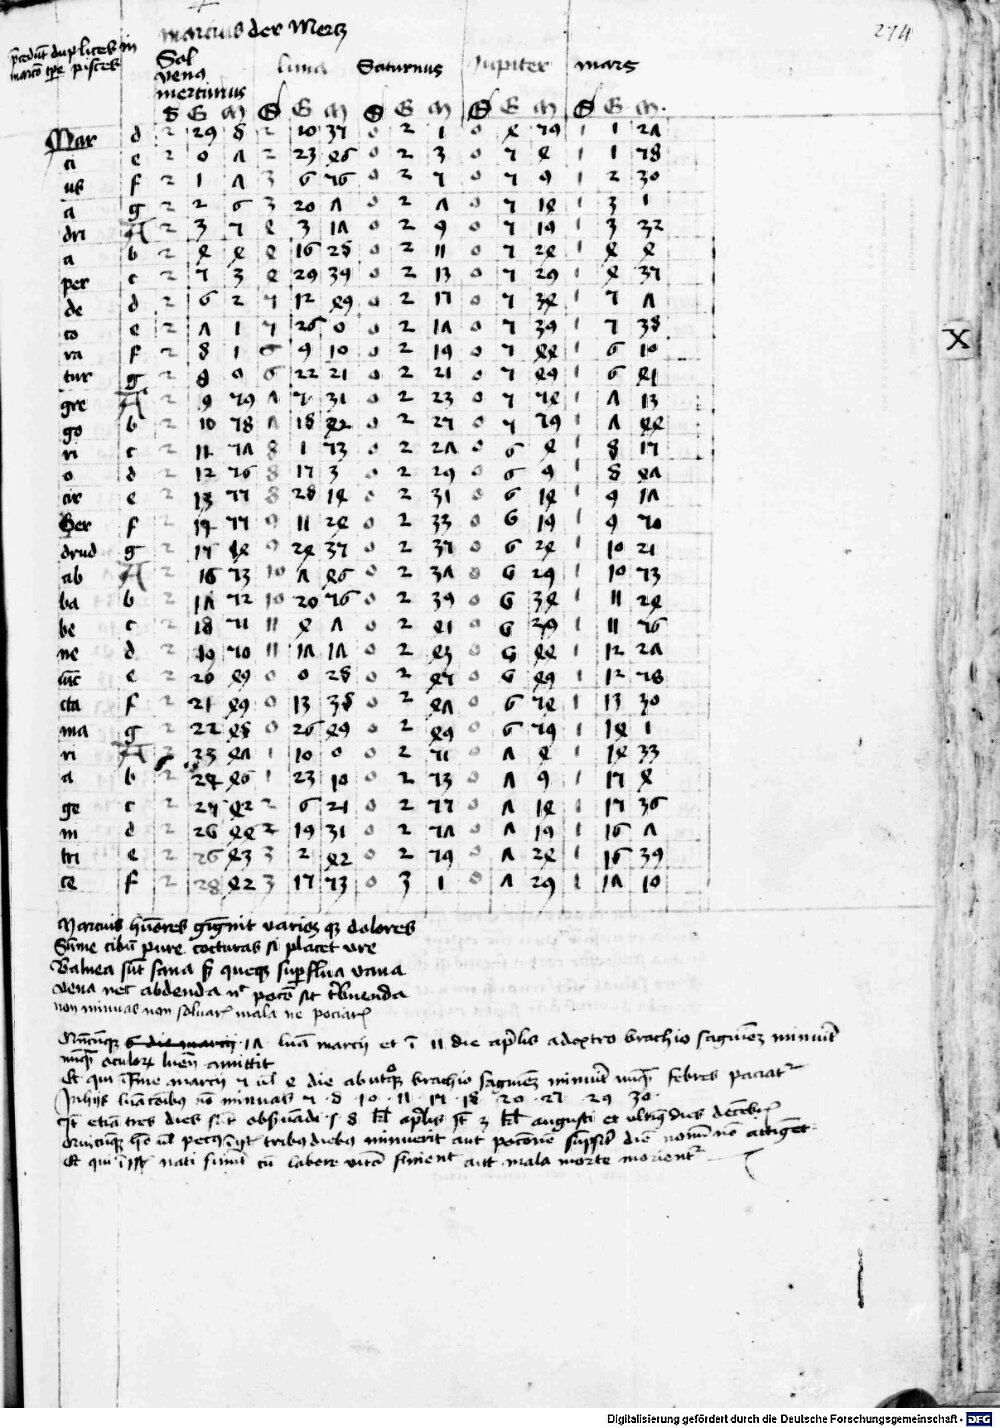 274
marcius der Mertz
precedunt duplices in
marcio tempore pisces
Sol
venus
mercurius luna Saturnus Jupiter mars
S G M S G M S G M S G M S G M
Mar d 2 29 8 2 10 35 0 2 1 0 4 59 1 1 27
ci e 2 0 7 2 23 46 0 2 3 0 5 4 1 1 58
us f 2 1 7 3 6 56 0 2 5 0 5 9 1 2 30
a g 2 2 6 3 20 7 0 2 7 0 5 14 1 3 1
dri A 2 3 5 4 3 17 0 2 9 0 5 19 1 3 32
a b 2 4 4 4 16 28 0 2 11 0 5 24 1 4 4
per c 2 5 3 4 29 39 0 2 13 0 5 29 1 4 35
de d 2 6 2 5 12 49 0 2 15 0 5 34 1 5 7
co e 2 7 1 5 26 0 0 2 17 0 5 39 1 5 38
ra f 2 8 1 6 9 10 0 2 19 0 5 44 1 6 10
tur g 2 8 0 6 22 21 0 2 21 0 5 49 1 6 41
gre A 2 9 59 7 5 31 0 2 23 0 5 54 1 7 13
go b 2 10 58 7 18 42 0 2 25 0 5 59 1 7 44
ri c 2 11 57 8 1 53 0 2 27 0 6 4 1 8 15
o d 2 12 56 8 15 3 0 2 29 0 6 9 1 8 47
cir e 2 13 55 8 28 14 0 2 31 0 6 14 1 9 17
Ger f 2 14 55 9 11 24 0 2 33 0 6 19 1 9 50
drud g 2 15 54 9 24 35 0 2 35 0 6 24 1 10 21
ab A 2 16 53 10 7 46 0 2 37 0 6 29 1 10 53
ba b 2 17 52 10 20 56 0 2 39 0 6 34 1 11 24
be c 2 18 51 11 4 7 0 2 41 0 6 39 1 11 56
ne d 2 19 50 11 17 17 0 2 43 0 6 44 1 12 27
dic e 2 20 49 0 0 28 0 2 45 0 6 49 1 12 58
cta f 2 21 49 0 13 38 0 2 47 0 6 54 1 13 30
ma g 2 22 48 0 26 49 0 2 49 0 6 59 1 14 1
ri A 2 33 47 1 10 0 0 2 51 0 7 4 1 14 33
a b 2 24 46 1 23 10 0 2 53 0 7 9 1 15 4
ge c 2 25 42 2 6 21 0 2 55 0 7 14 1 15 36
ni d 2 26 44 2 19 31 0 2 57 0 7 19 1 16 7
tri e 2 26 43 3 2 42 0 2 59 0 7 24 1 16 39
ce f 2 28 42 3 15 53 0 3 1 0 7 29 1 17 10
Marcius humores gignit varios que dolores
Sume cibum pure cocturas si placet ure
Balnea sunt sana sed queque superflua vana
vena nec abdenda nec pocio sit tribuenda
non minuas non soluaris mala ne pociaris
Quicunque 17 luna marcii et in 11 die aprilis a dextro brachio sagwinem minuerit
nunquam oculorum lumen amittit
Et qui in fine marcii 5 vel 4 die ab utroque brachio sagwinem minuerit nunquam febres paciatur
In hiis lunacionibus non minuas 5 · 8 · 10 · 11 · 15 · 18 · 20 · 25 · 29 30
Sunt etiam tres dies sunt obseruandi · 8 kl aprilis kl augusti et ultimus dies decembris
Quicunque homo vel pecus tribus diebus minuerit aut pocionem sumpserit diem nonum non attinget
Et qui nati fuerint cum labore vitam finient aut mala morte morientur
X
Digitalisierung gefördert durch die Deutsche Forschungsgemeinschaft - DFG